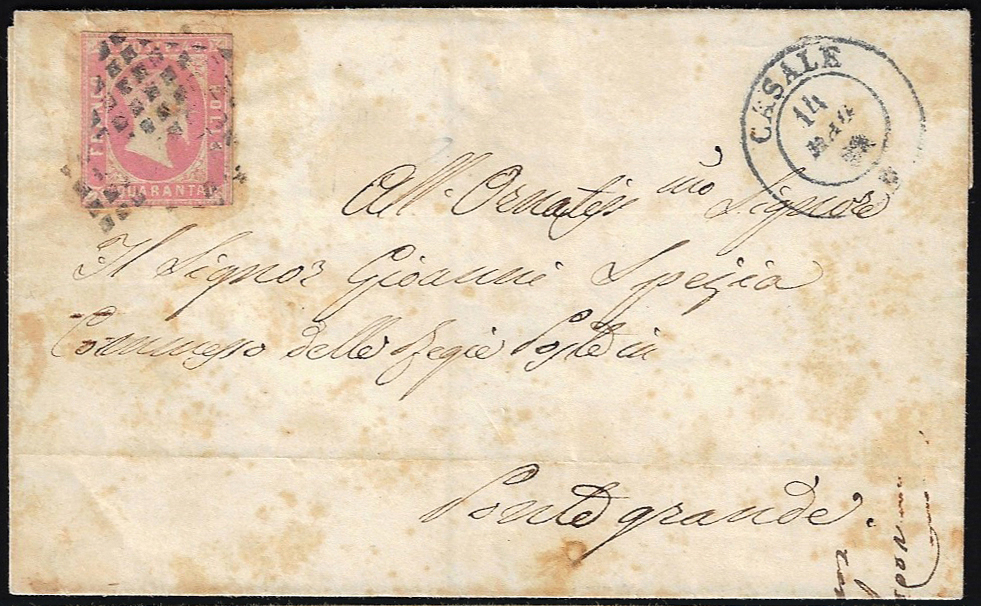 FRANCO
BOLLO
QUARANTA
CASALE
14
MAG
All' Ornatiss mo Signore
Il Signor Gioanni Spezia
Commesso delle Regie Poste in
Pontegrande.